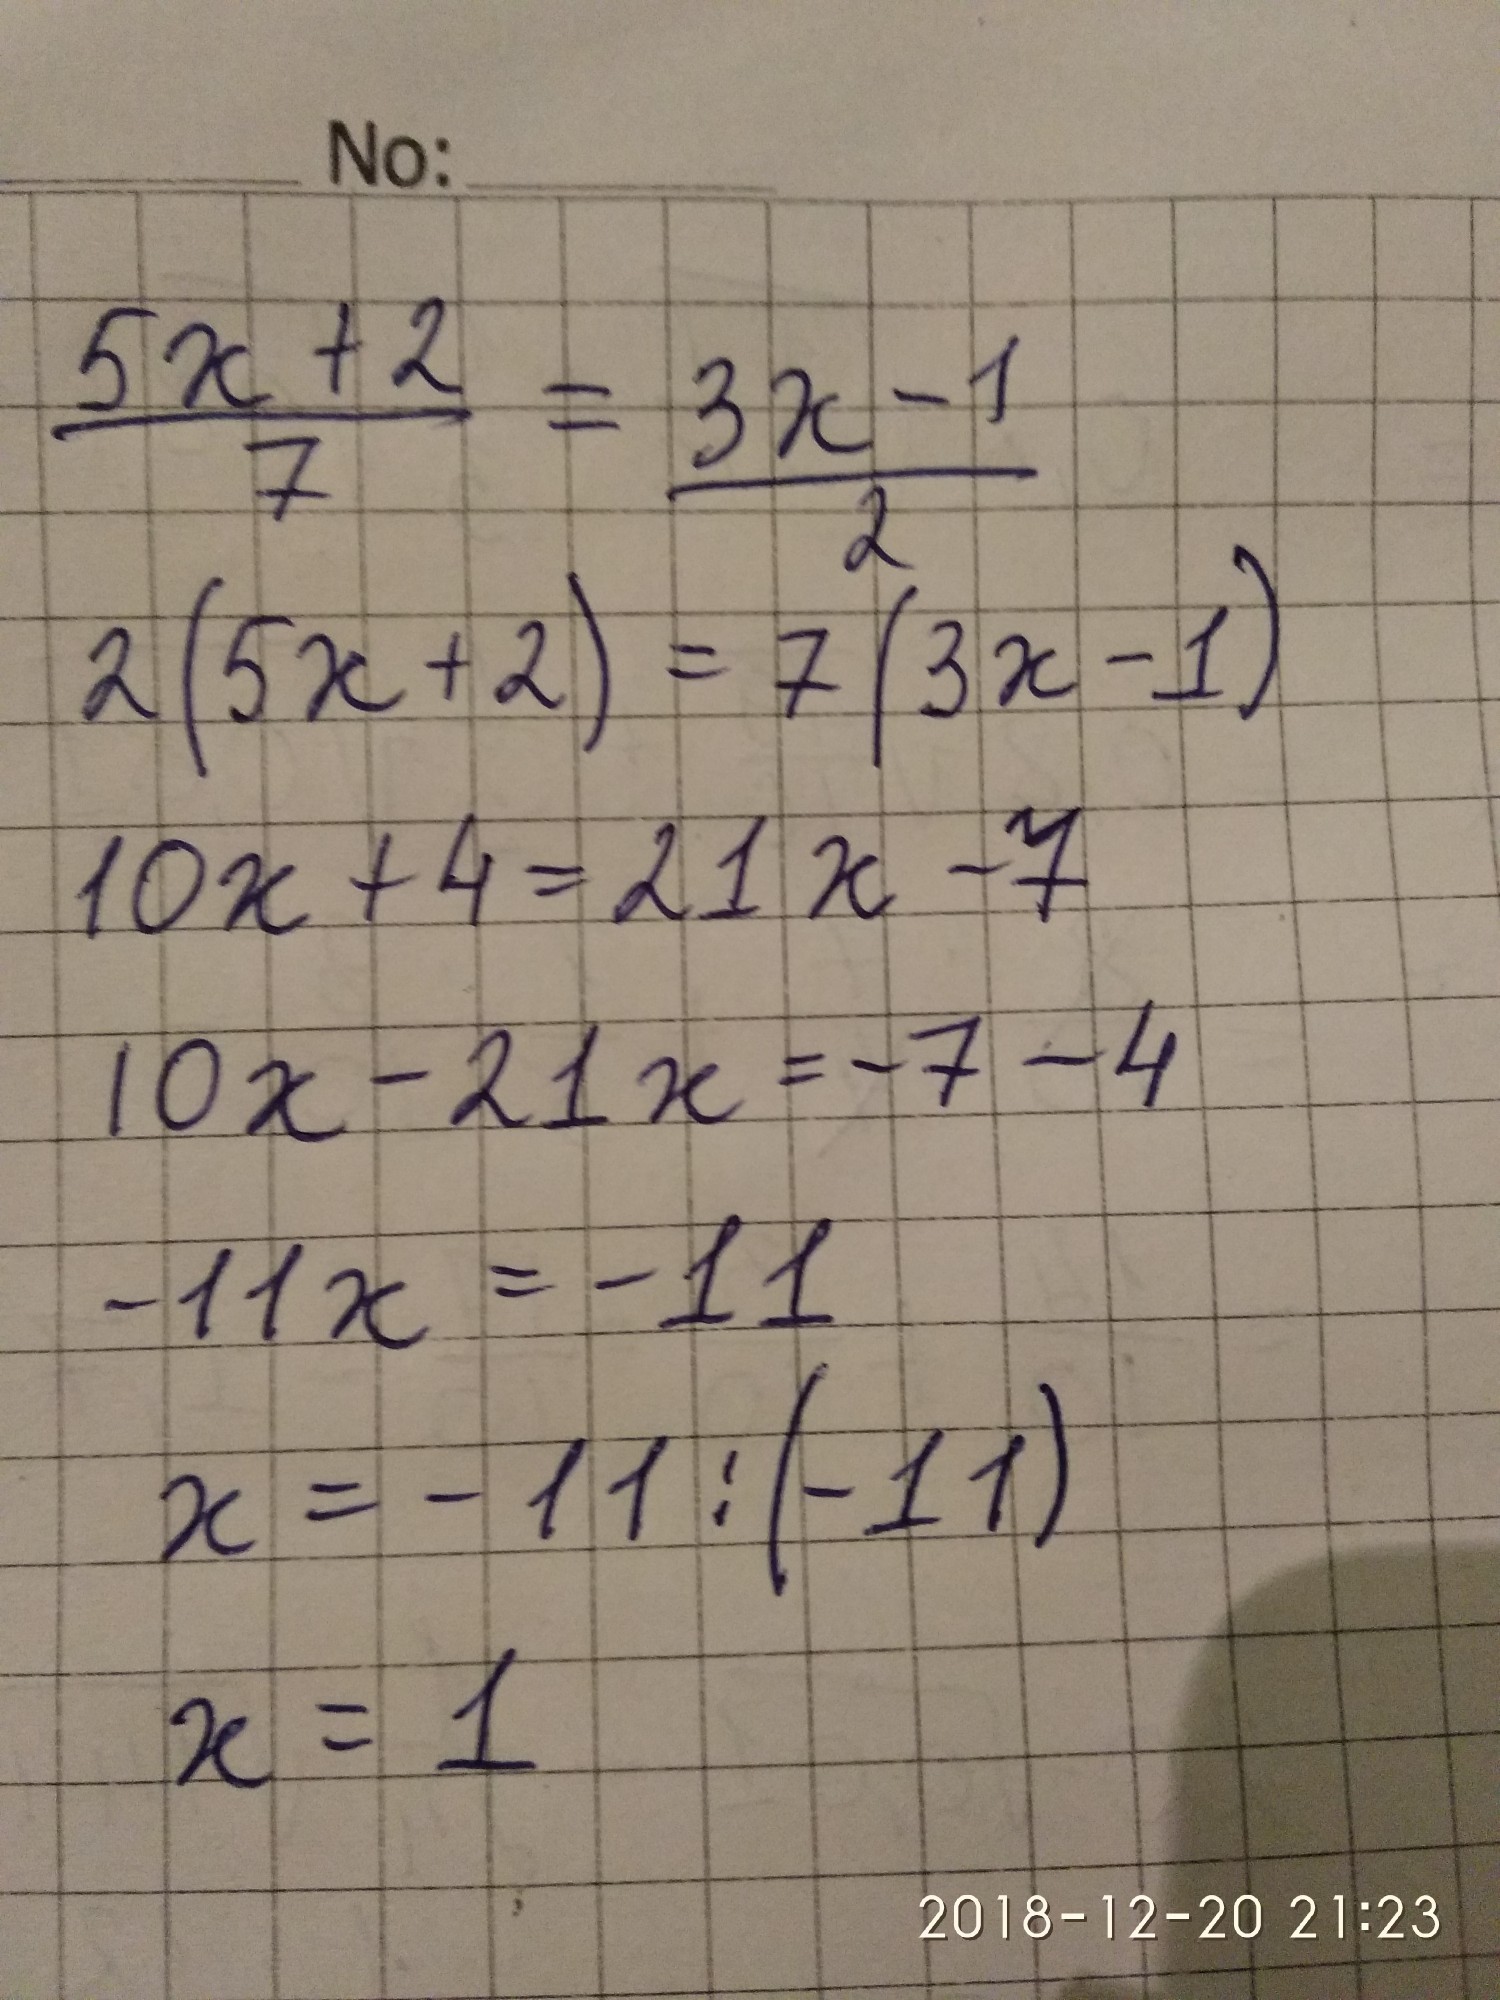 No:
5x + 2 / 7 = 3x - 1 / 2
2(5x + 2) = 7(3x - 1)
10x + 4 = 21x - 7
10x - 21x = -7 - 4
-11x = -11
x = -11 : (-11)
x = 1
2018-12-20 21:23